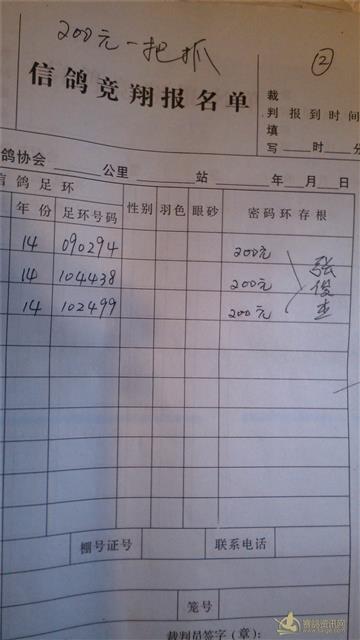 200元一把抓
②
信鸽竞翔报名单
裁
判 报到时间
填
写 __时__分
鸽协会______公里______站______年__月__日
信鸽足环
年份 足环号码 性别 羽色 眼砂 密码环存根
14 090294 200元
14 104438 200元 张俊杰
14 102499 200元
棚号证号 联系电话
笼号
裁判员签字(章):
赛鸽资讯网